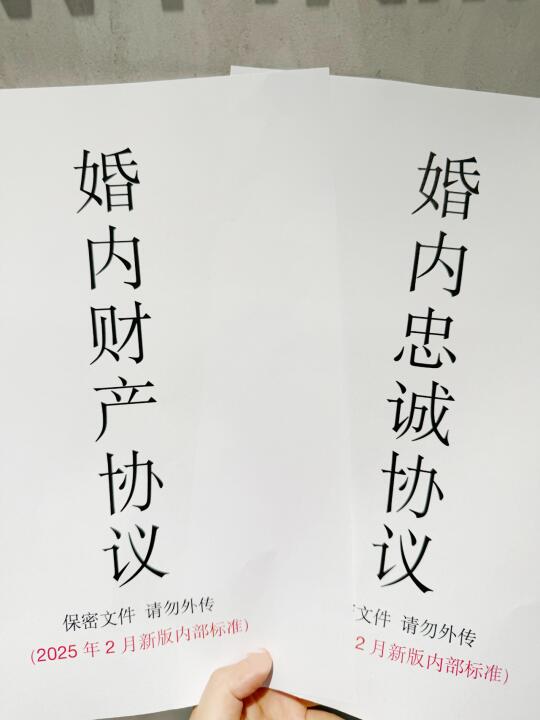 婚内财产协议
保密文件 请勿外传
(2025年2月新版内部标准)
婚内忠诚协议
文件 请勿外传
2月新版内部标准)